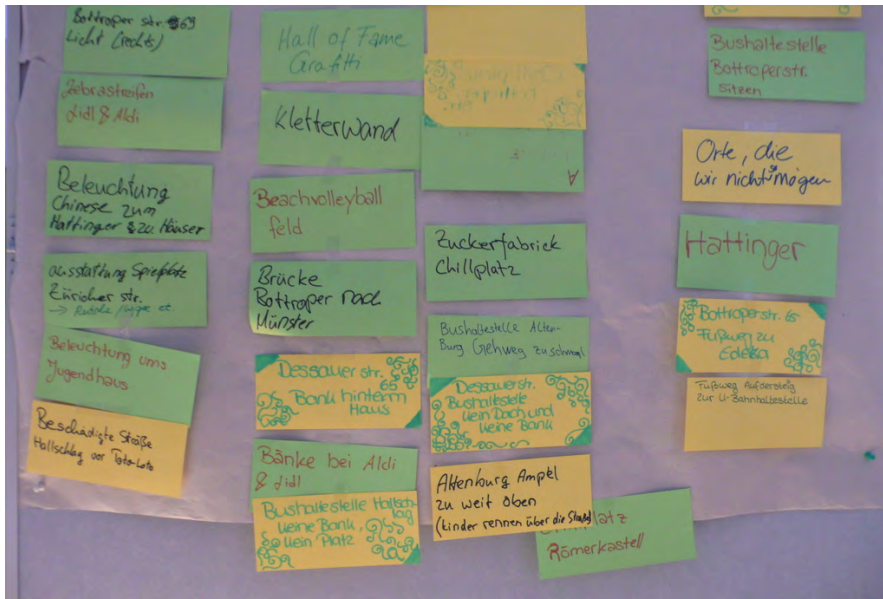 Bottroper str. 69
Licht (rechts)
Zebrastreifen
Lidl & Aldi
Beleuchtung
Chinese zum
Hattinger & zu Häuser
ausstattung Spielplatz
Züricher str.
Beleuchtung ums
Jugendhaus
Beschädigte Straße
Hallschlag vor Toto-Loto
Hall of Fame
Grafitti
Kletterwand
Beachvolleyball
feld
Brücke
Bottroper nach
Münster
Dessauer str.
65
Bank hinterm
Haus
Bänke bei Aldi
& Lidl
Bushaltestelle Hallsch-
lag
keine Bank,
kein Platz
A
Zuckerfabriek
Chillplatz
Bushaltestelle Alten-
Burg Gehweg zu schmal
Dessauerstr.
Bushaltestelle
kein Dach und
keine Bank
Altenburg Ampel
zu weit Oben
(kinder rennen über die Straße)
Römerkastell
Bushaltestelle
Bottroperstr.
sitzen
Orte, die
wir nicht mögen
Hattinger
Bottroperstr. 65
Fußweg zu
Edeka
Fußweg Aufdersteig
zur U-Bahnhaltestelle